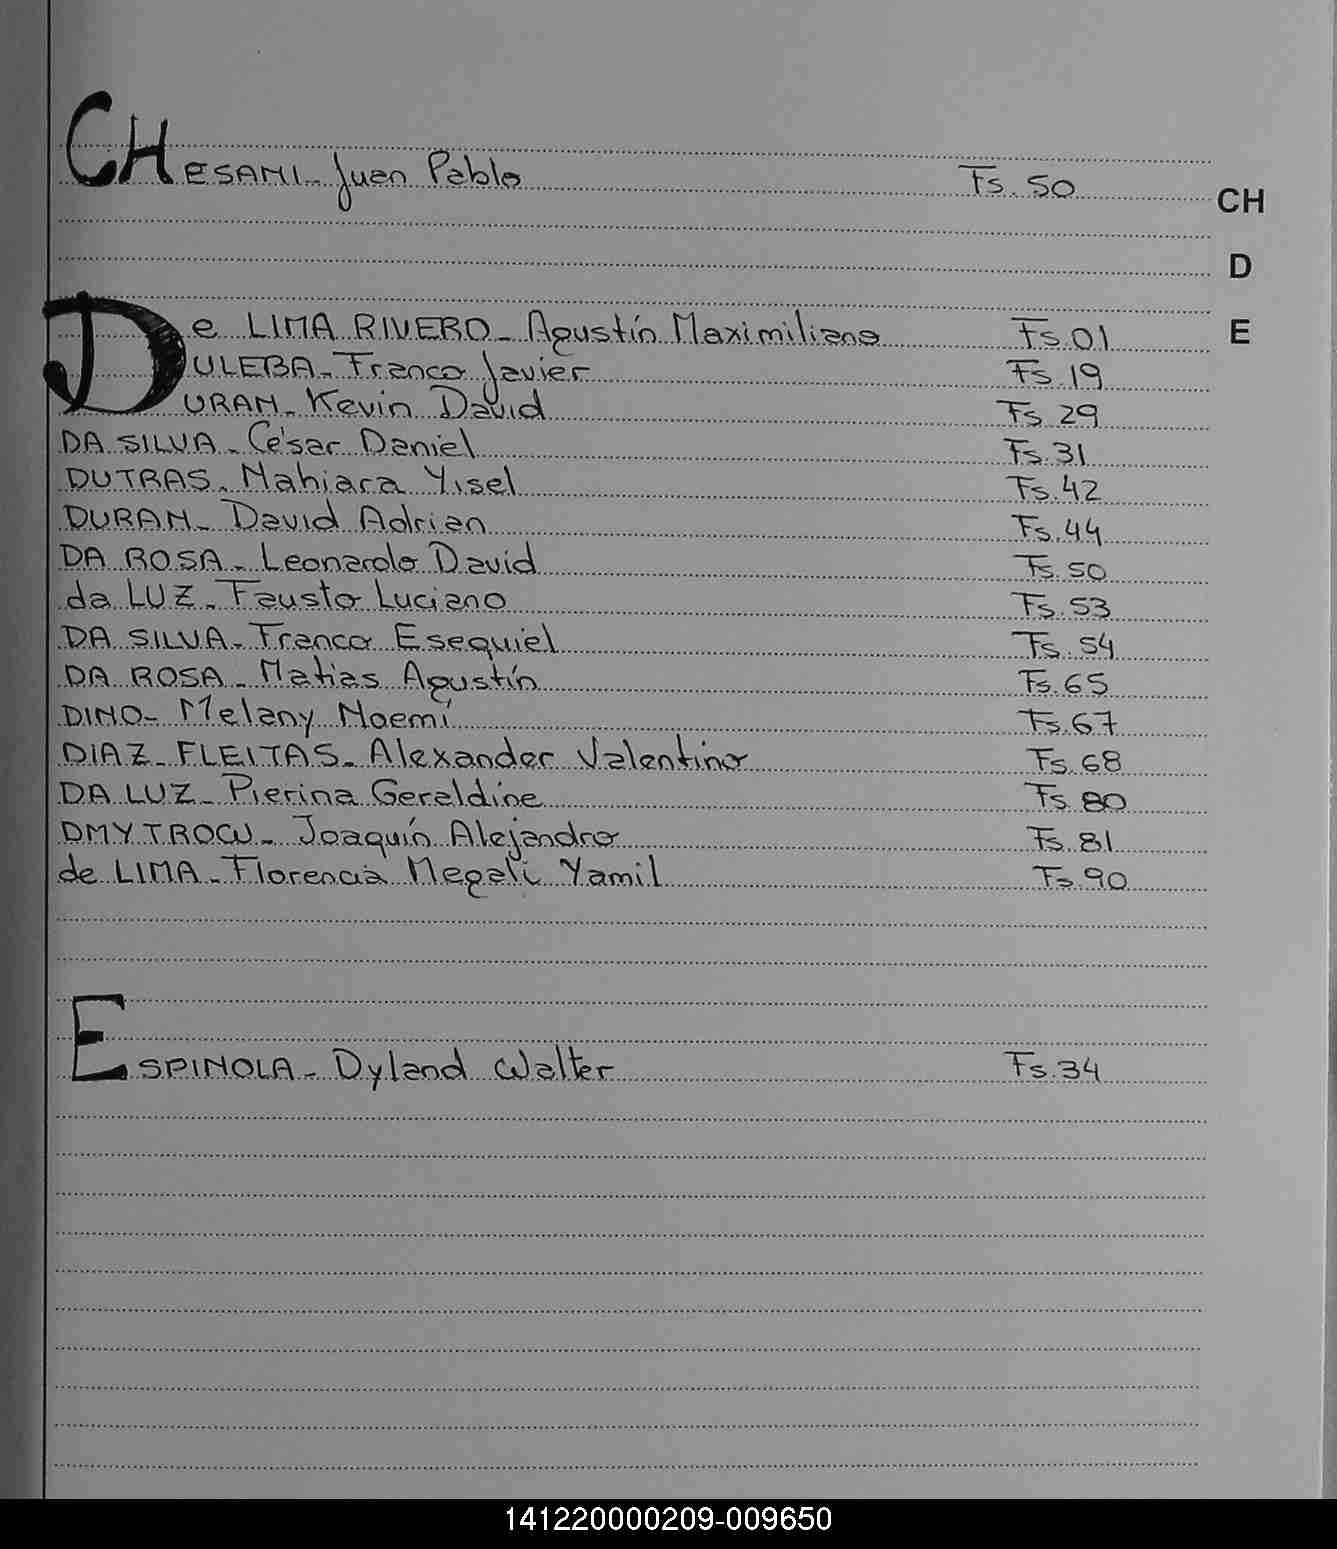 CHESAMI_ Juan Pablo Fs. 50
CH
D
De LIMA RIVERO_ Agustín Maximiliano Fs. 01
E
DULEBA_ Franco Javier Fs. 19
DURAN_ Kevin David Fs. 29
DA SILVA_ César Daniel Fs. 31
DUTRAS_ Nahiara Yisel Fs. 42
DURAN_ David Adrian Fs. 44
DA ROSA_ Leonardo David Fs. 50
da LUZ_ Fausto Luciano Fs. 53
DA SILVA_ Franco Esequiel Fs. 54
DA ROSA_ Matias Agustín Fs. 65
DINO_ Melany Noemí Fs. 67
DIAZ_ FLEITAS_ Alexander Valentino Fs. 68
DA LUZ_ Pierina Geraldine Fs. 80
DMYTROW_ Joaquín Alejandro Fs. 81
de LIMA_ Florencia Magalí Yamil Fs. 90
ESPINOLA_ Dyland Walter Fs. 34
141220000209-009650